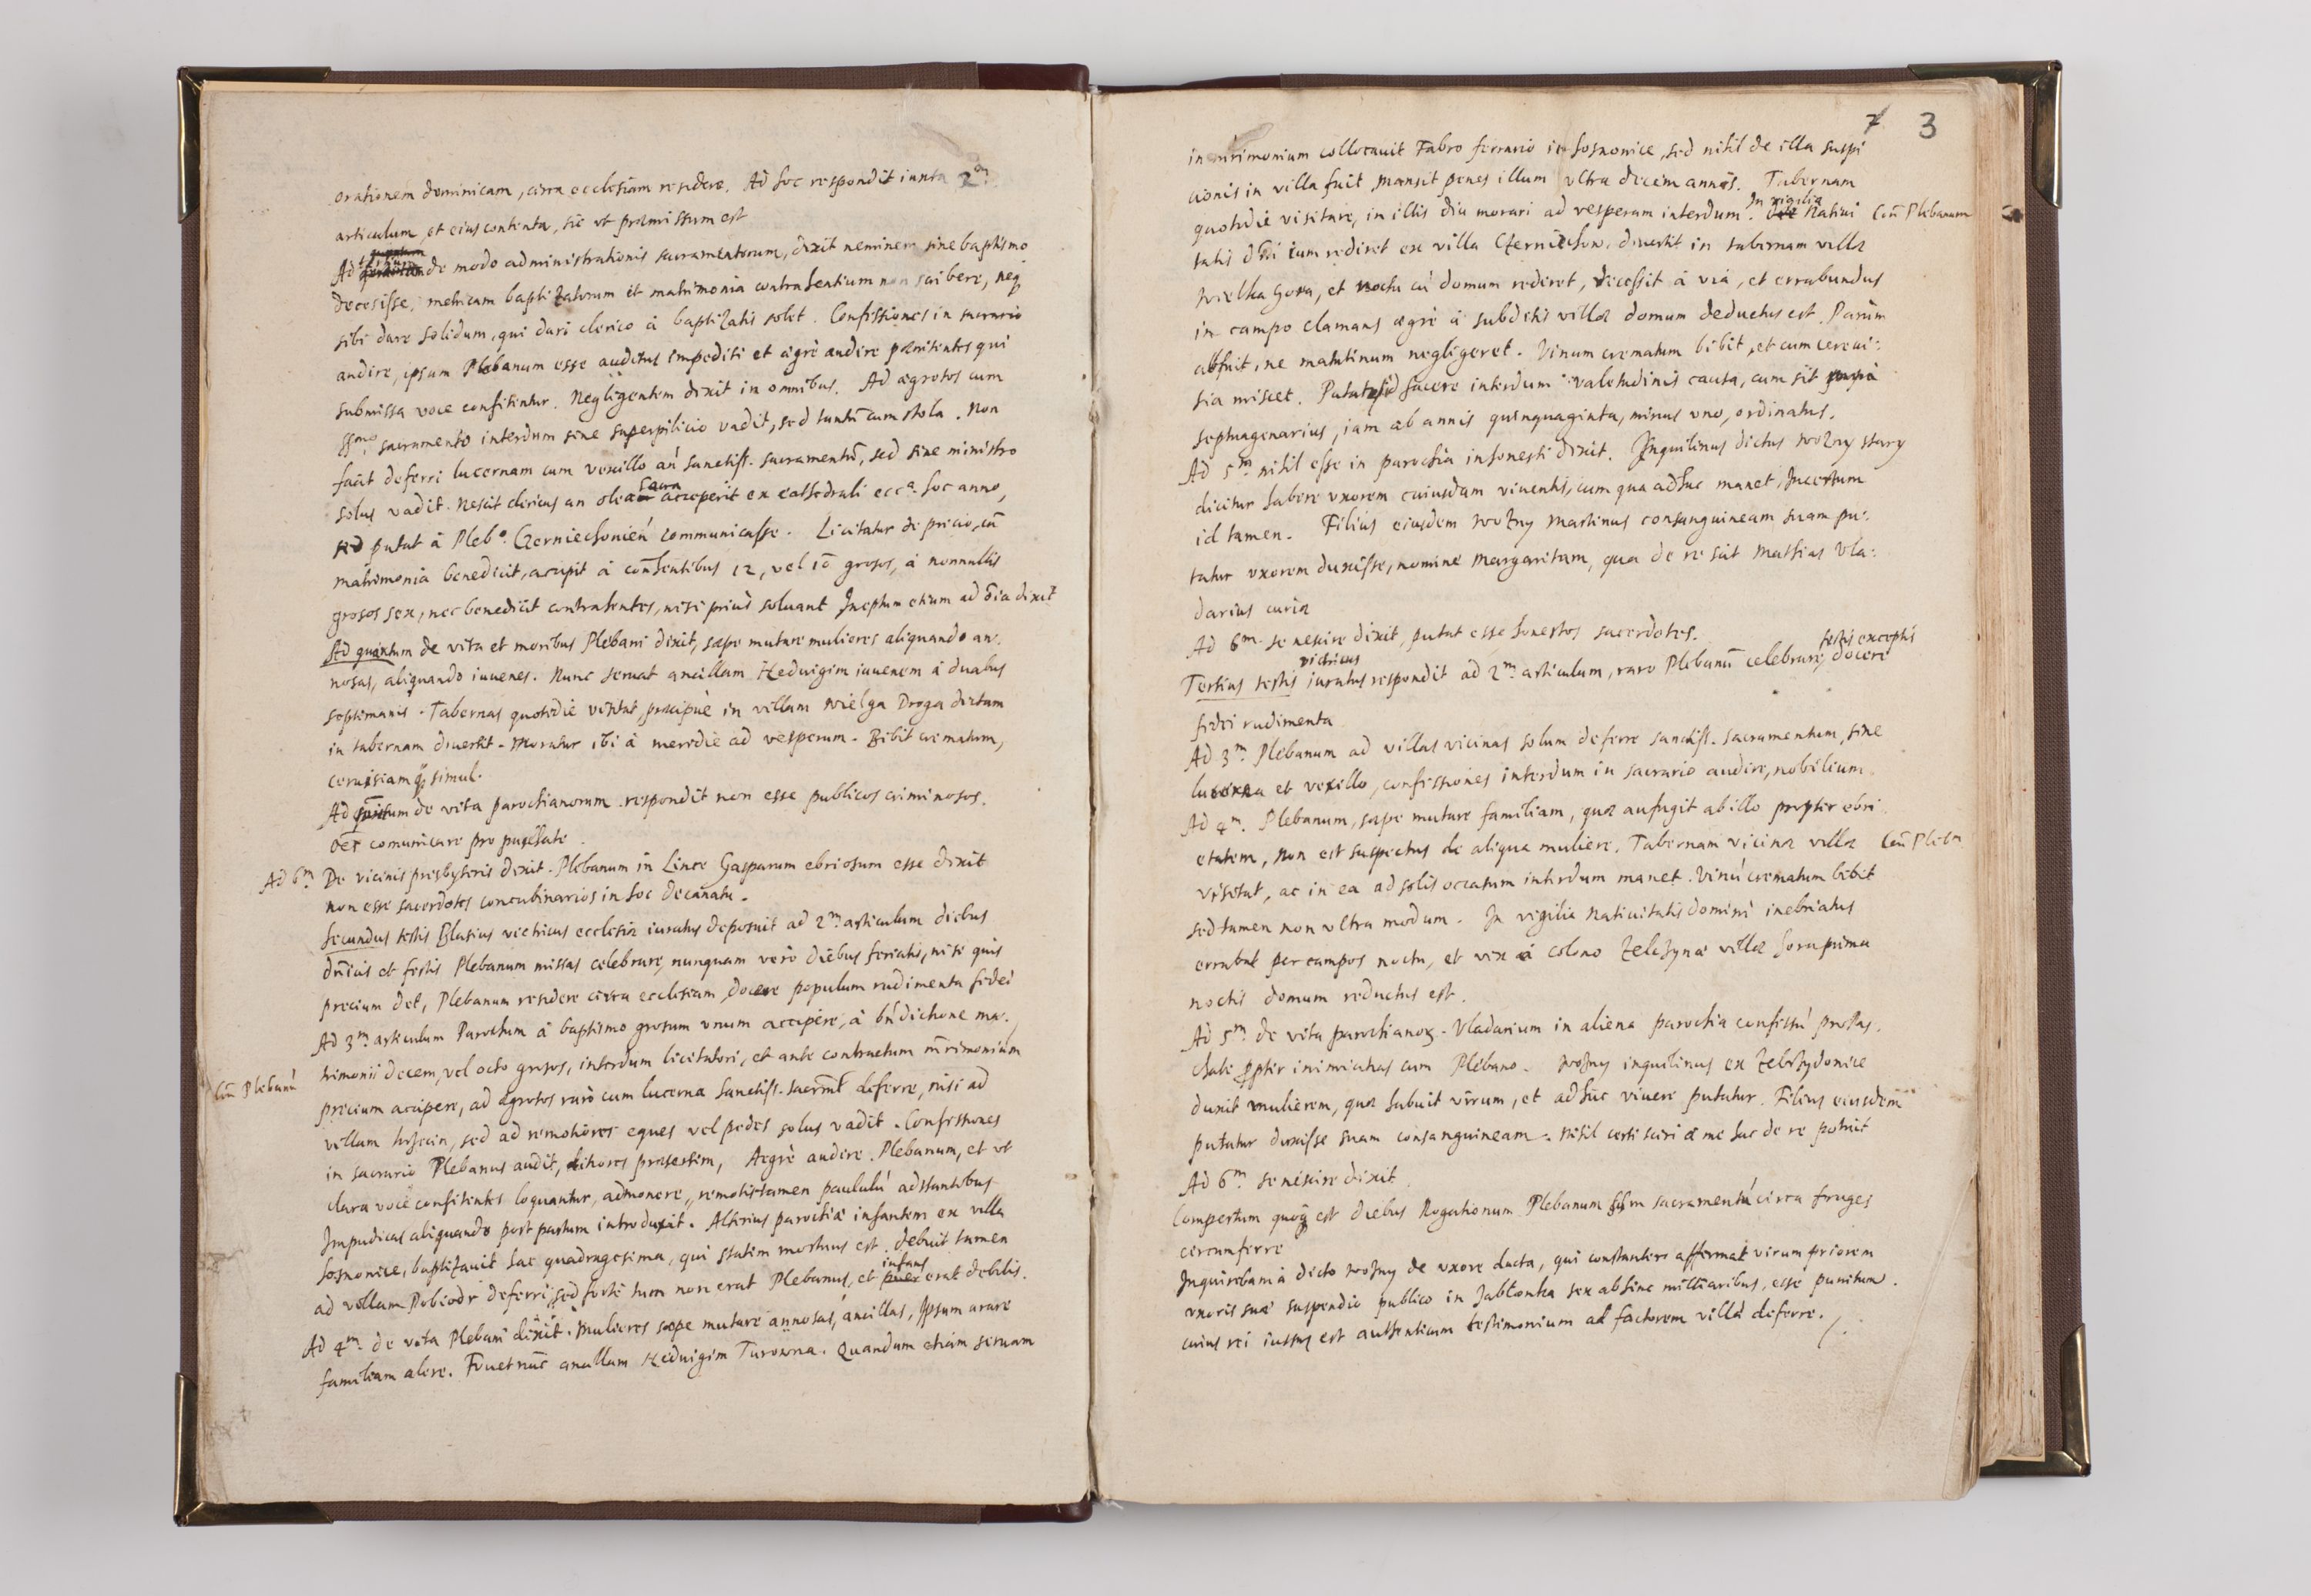 orationem dominicam, circa ecclesiam residere. Ad hoc respondit iuxta 2m
articulum, et eius contenta, sic ut præmissum est
Ad tertium de modo administrationis sacramentorum, dixit neminem sine baptismo
decesisse, metricam baptizatorum et matrimonia contrahentium non scribere, neq
sibi dare solidum, qui dari clerico à baptizatis solet. Confessiones in sacrario
audire, ipsum Plebanum esse auditus impediti et ægrè audire pænitentes qui
submissa voce confitentur. Negligentem dixit in omnibus. Ad ægrotos cum
ssmo sacramento interdum sine superpilicio vadit, sed tantũ cum stola. Non
facit deferri lucernam cum vexillo an sanctiss. sacramentũ, sed sine ministro
solus vadit. Nescit clericus an olea sacra acceperit ex cathedrali ecca. hoc anno,
sed putat à Plebo. Czerniechonień communicasse. Licitatur de precio, cũ
matrimonia benedicit, accipit à consentibus 12, vel 10 grosos, à nonnullis
grosos sex, nec benedicit contrahentes, nisi prius soluant Ineptum etiam ad õia dixit
Ad quartum de vita et moribus Plebani dixit, sæpe mutare mulieres aliquando an:
nosas, aliquando iuuenes. Nunc seruat ancillam Heduigim iuuenem à duabus
septimanis. Tabernas quotidie visitat præcipuè in villam Wielga Droga dictam
in tabernam diuertit. Moratur ibi à meridie ad vesperum. Bibit crematum,
ceruisiam q3 simul.
Ad quintum de vita parochianorum respondit non esse publicos criminosos.
oẽs comunicare pro puritate.
Ad 6m. De vicinis presbyteris dixit. Plebanum in Lince Gasparum ebriosum esse dixit
non esse sacerdotes concubinarios in hoc decanatu.
Secundus testis Blasius victricus ecclesiæ iuratus deposuit ad 2m. articulum diebus
dñicis et festis Plebanum missas celebrare, nunquam verò diebus feriatis, nisi quis
precium det, Plebanum residere circa ecclesiam, docere populum rudimenta fidei
Ad 3m. articulum Parochum à baptismo grosum vnum accipere, à bńdictione ma:
trimonii decem, vel octo grosos, interdum licitatori, et ante contractum mr̃imonium
Coñ Plebanũ
precium accipere, ad ægrotos rarò cum lucerna sanctiss. sacrmt̃ deferre, nisi ad
villam, sed ad remotiores eques vel pedes solus vadit. Confessiones
in sacrario Plebanus audit, ditiores præsertim, Aegrè audire Plebanum, et vt
clara voce confitentes loquantur, admonere, remotis tamen paululũ adstantibus
Impudicas aliquando post partum introduxit. Alterius parochiæ infantem ex villa
Sosnonice, baptizauit hac quadragesima, qui statim mortuus est. Debuit tamen
ad villam Pobiedr deferri, sed forte tum non erat Plebanus, et puer infans erat debilis.
Ad 4m. de vita Plebani dixit. Mulieres sæpe mutare annosas, ancillas, Ipsum arare
familiam alere. Fouet nũc ancillam Heduigim Turowna. Quandum etiam seruam
7 3
in mr̃imonium collocauit Fabro ferrario in Sosnonice, sed nihil de illa suspi
cionis in villa fuit, mansit penes illum vltra decem annos. Tabernam
quotidie visitare, in illis diu morari ad vesperam interdum. In vigilia Natiui Coñ Plebanum
tatis dñi cum rediret ex villa Czerniechow, diuertit in tabernam villæ
Wielka Gora, et noctu cũ domum rediret, decessit à via, et errabundus
in campo clamans ægrè à subditis villæ domum deductus est. Parùm
abfuit, ne matutinum negligeret. Vinum crematum bibit, et cum cereui:
sia miscet. Putat id facere interdum valetudinis causa, cum sit
septuagenarius, iam ab annis quinquaginta, minus vno, ordinatus.
Ad 5m. nihil esse in parochia inhonesti dixit. Inquilinus dictus Wozny stary
dicitur habere vxorem cuiusdam viuentis, cum qua adhuc manet, Incertum
id tamen. Filius eiusdem Wozny Martinus consanguineam suam pu:
tatur vxorem duxisse, nomine Margaritam, qua de re scit Mathias Vla:
darius curiæ
Ad 6m. se nescire dixit, putat esse honestos sacerdotes.
Tertius testis victricus iuratus respondit ad 2m. articulum, raro Plebanũ celebrare, festis exceptis docere
fidei rudimenta
Ad 3m. Plebanum ad villas vicinas solum deferre sanctiss. sacramentum, sine
lucerna et vexillo, confessiones interdum in sacrario audire, nobilium
Ad 4m. Plebanum, sæpe mutare familiam, quæ aufugit ab illo propter ebri
etatem, non est suspectus de aliqua muliere. Tabernam vicinæ villæ Coñ Plebm
visitat, ac in ea ad solis occasum interdum manet. Vinũ crematum bibit
sed tamen non vltra modum. In vigilia Natiuitatis domini inebriatus
errabat per campos noctu, et vix à colono Zelezynæ villæ hora prima
noctis domum reductus est.
Ad 5m. de vita parochianoꝝ. Vladarium in aliena parochia confessũ propas.
chate ꝓpter inimicitias cum Plebano. Wozny inquilinus ex Zebrzydonice
duxit mulierem, quæ habuit virum, et adhuc viuere putatur. Filius eiusdem
putatur duxisse suam consanguineam. nihil certi sciri à me hac de re potuit
Ad 6m se nescire dixit.
Compertum quoq3 est diebus Rogationum Plebanum ssm sacramentũ circa fruges
circumferre
Inquirebam à dicto Wozny de vxore ducta, qui constanter affirmat virum priorem
vxoris suæ suspendio publico in Jabłonka sex abhinc milliaribus, esse punitum.
cuius rei iussus est authenticum testimonium ad factorem villæ deferre. /.